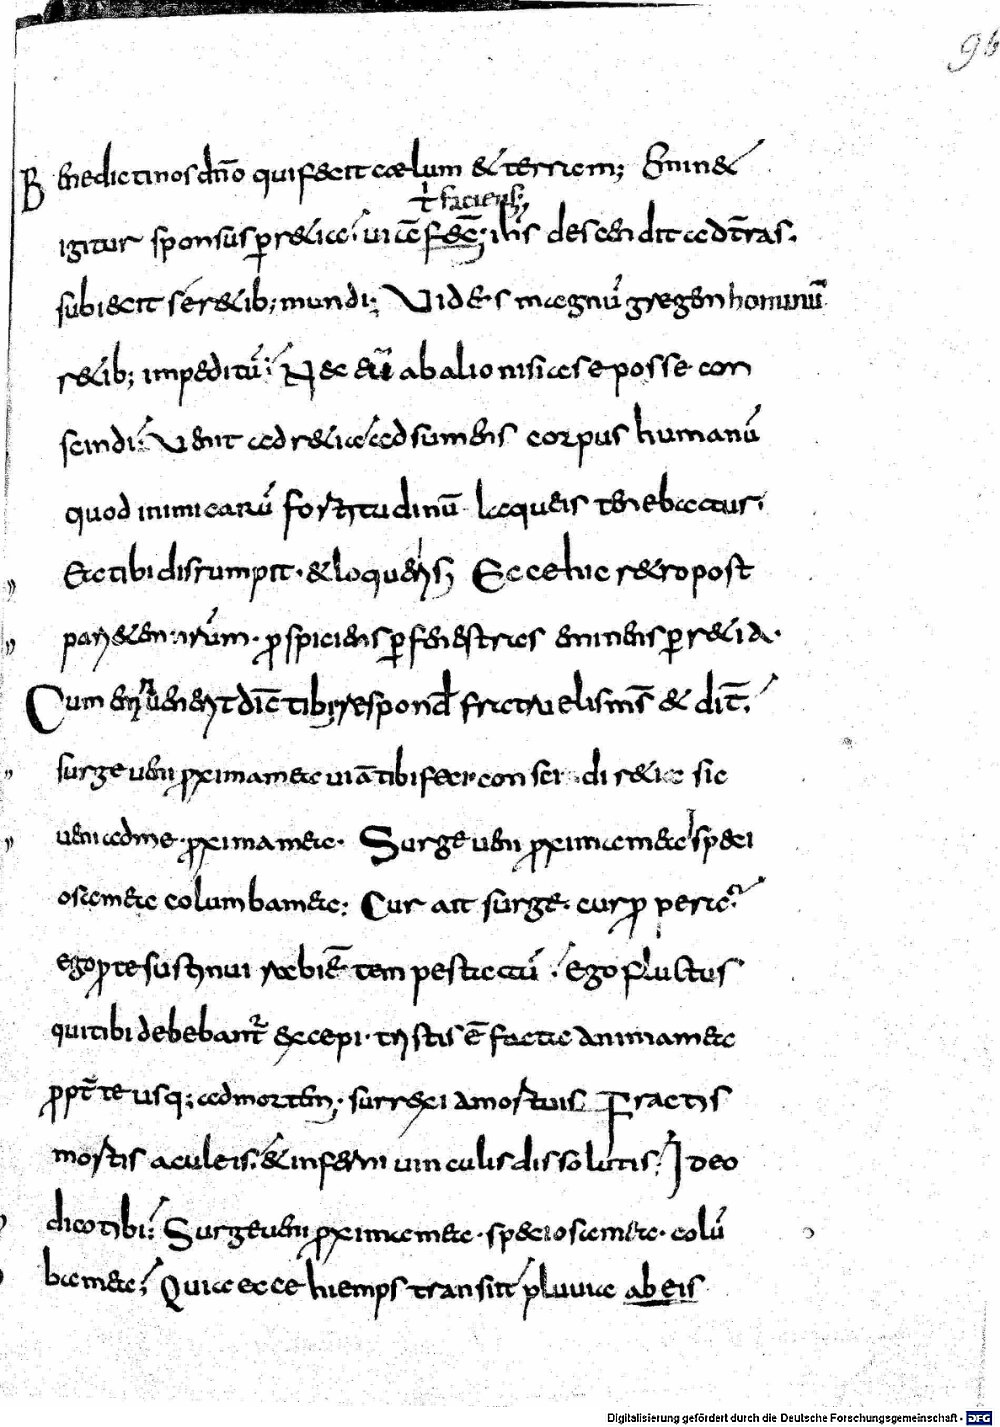 96
Benedicti nos dn̄o qui fecit caelum & terram; Eminet
ł faciens;
igitur sponsus p̱ retia; uiā fec̄; ihs descendit ad tr̄as.
subiecit se retib; mundi; Vides magnū gregem hominū
retib; impeditū; Nec eū ab alio nisi a se posse con
scindi; Venit ad retia adsumens corpus humanū
quod inimicarū fortitudinū laqueis tenebatur;
Et tibi disrumpit. & loquens; Ecce hic retro post
parietem n̄rum. prospiciens p̱ fenestras eminens p̱ retia.
Cum enim uenerit dic̄ tibi, respond fratruelis ms̄ & dic̄t;
surge ueni proxima mea uiā tibi feci conscidi retia sic
ueni ad me. proxima mea. Surge ueni proxima mea speci
osa mea columba mea; Cur ait surge. cur propera
ego pro te sustinui rabiē tempestatū; ego fluctus
qui tibi debebant̄ excepi. tristis ē facta anima mea
propt̄ te usq; ad mortem. surrexi a mortuis Fractis
mortis aculeis. & inferni uinculis dissolutis. Ideo
dico tibi; Surge ueni proxima mea. speciosa mea. colū
ba mea; Quia ecce hiemps transiit pluuia abeis
Digitalisierung gefördert durch die Deutsche Forschungsgemeinschaft - DFG